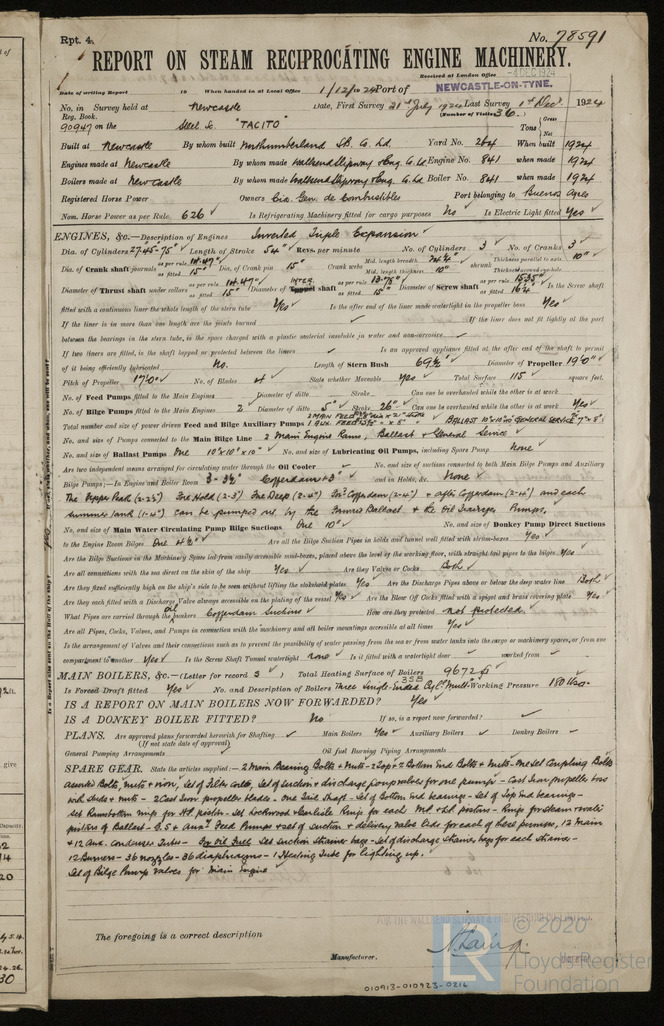 Rpt. 4.
No. 78591
REPORT ON STEAM RECIPROCATING ENGINE MACHINERY.
Received at London Office -4 DEC 1924
Date of writing Report 19 When handed in at Local Office 1/12/1924 Port of NEWCASTLE-ON-TYNE.
No. in Survey held at Newcastle Date, First Survey 21st July 1924 Last Survey 1st Dec. 1924
Reg. Book. (Number of Visits 36.)
90947 on the Steel Sc. "TACITO" Tons Gross Net
Built at Newcastle By whom built Northumberland SB. Co. Ld. Yard No. 264 When built 1924
Engines made at Newcastle By whom made Wallsend Slipway & Eng. Co. Ld Engine No. 841 when made 1924
Boilers made at Newcastle By whom made Wallsend Slipway & Eng. Co. Ld Boiler No. 841 when made 1924
Registered Horse Power Owners Cia. Gen. de Combustibles Port belonging to Buenos Ayres
Nom. Horse Power as per Rule 626 Is Refrigerating Machinery fitted for cargo purposes No Is Electric Light fitted Yes
ENGINES, &c.—Description of Engines Inverted Triple Expansion
Dia. of Cylinders 27"-45"-75" Length of Stroke 54" Revs. per minute No. of Cylinders 3 No. of Cranks 3
Dia. of Crank shaft journals as per rule 14.47" as fitted 15" Dia. of Crank pin 15" Crank webs Mid. length breadth Mid. length thickness 10" shrunk Thickness parallel to axis 10" Thickness around eye-hole
Diameter of Thrust shaft under collars as per rule 14.47" as fitted 15" Diameter of Tunnel shaft INTER. as per rule 13.78" as fitted 15" Diameter of Screw shaft as per rule 15.35" as fitted 16¼" Is the Screw shaft
fitted with a continuous liner the whole length of the stern tube Yes Is the after end of the liner made watertight in the propeller boss Yes
If the liner is in more than one length are the joints burned If the liner does not fit tightly at the part
between the bearings in the stern tube, is the space charged with a plastic material insoluble in water and non-corrosive.
If two liners are fitted, is the shaft lapped or protected between the liners Is an approved appliance fitted at the after end of the shaft to permit
of it being efficiently lubricated No. Length of Stern Bush 69½" Diameter of Propeller 19'0"
Pitch of Propeller 17'0" No. of Blades 4 State whether Moveable Yes Total Surface 115 square feet.
No. of Feed Pumps fitted to the Main Engines Diameter of ditto Stroke Can one be overhauled while the other is at work
No. of Bilge Pumps fitted to the Main Engines 2 Diameter of ditto 5" Stroke 26" Can one be overhauled while the other is at work Yes
Total number and size of power driven Feed and Bilge Auxiliary Pumps
No. and size of Pumps connected to the Main Bilge Line 2 Main Engine Rams, Ballast & General Service
No. and size of Ballast Pumps One 10"x10"x10" No. and size of Lubricating Oil Pumps, including Spare Pump None
Are two independent means arranged for circulating water through the Oil Cooler No. and size of suctions connected to both Main Bilge Pumps and Auxiliary
Bilge Pumps;—In Engine and Boiler Room 3-3½" Cofferdam 3" and in Holds, &c. None
The Pepper Peak (2-2½") Fore Hold (2-3") Fore Deep (2-4") Ford Cofferdam (2-4") & after Cofferdam (2-4") and each
summer land (1-4") can be pumped out by the Ford Ballast & the Oil Transfer Pumps.
No. and size of Main Water Circulating Pump Bilge Suctions One 10" No. and size of Donkey Pump Direct Suctions
to the Engine Room Bilges One 4½" Are all the Bilge Suction Pipes in holds and tunnel well fitted with strum-boxes Yes
Are the Bilge Suctions in the Machinery Space led from easily accessible mud-boxes, placed above the level of the working floor, with straight tail pipes to the bilges Yes
Are all connections with the sea direct on the skin of the ship Yes Are they Valves or Cocks Both
Are they fixed sufficiently high on the ship's side to be seen without lifting the stokehold plates Yes Are the Discharge Pipes above or below the deep water line Both
Are they each fitted with a Discharge Valve always accessible on the plating of the vessel Yes Are the Blow Off Cocks fitted with a spigot and brass covering plate Yes
What Pipes are carried through the oil bunkers Cofferdam Suctions How are they protected not protected.
Are all Pipes, Cocks, Valves, and Pumps in connection with the machinery and all boiler mountings accessible at all times Yes
Is the arrangement of Valves and their connections such as to prevent the possibility of water passing from the sea or from water tanks into the cargo or machinery spaces, or from one
compartment to another Yes Is the Screw Shaft Tunnel watertight none Is it fitted with a watertight door worked from
MAIN BOILERS, &c.—(Letter for record S) Total Heating Surface of Boilers 9672
Is Forced Draft fitted Yes No. and Description of Boilers 3SB Three Single-Ended Cyl. Mult. Working Pressure 180 lbs.
IS A REPORT ON MAIN BOILERS NOW FORWARDED? Yes
IS A DONKEY BOILER FITTED? No If so, is a report now forwarded?
PLANS. Are approved plans forwarded herewith for Shafting Main Boilers Yes Auxiliary Boilers Donkey Boilers
(If not state date of approval)
General Pumping Arrangements Oil fuel Burning Piping Arrangements
SPARE GEAR. State the articles supplied:—2 Main Bearing Bolts & Nuts-2 Top & 2 Bottom End Bolts & Nuts-One Set Coupling Bolts
Assorted Bolts, nuts & iron, Set of Filter cloths, Set of Suction & discharge pump valves for one pump - Cast Iron propeller boss
with Studs & nuts - 2 Cast Iron propeller blades - One Tail Shaft - Set of Bottom End bearings - Set of Top End bearings -
Set Ramsbottom rings for HP piston. Set Lockwood & Carlisle Rings for each MP & LP pistons - Rings for steam & valve
pistons of Ballast - G.S & Aux. Feed Pumps & set of Suction & delivery valve lids for each of these pumps, 12 Main
& 12 Aux. Condenser Tubes - For Oil Fuel Set Suction Strainer bags - Set of discharge Strainer bags for each Strainer -
12 burners - 36 nozzles - 36 diaphragms - 1 Heating Tube for lighting up.
Set of Bilge Pump Valves for Main Engine
The foregoing is a correct description
Manufacturer.
© 2020
LR Lloyd's Register
Foundation
010913-010923-0216